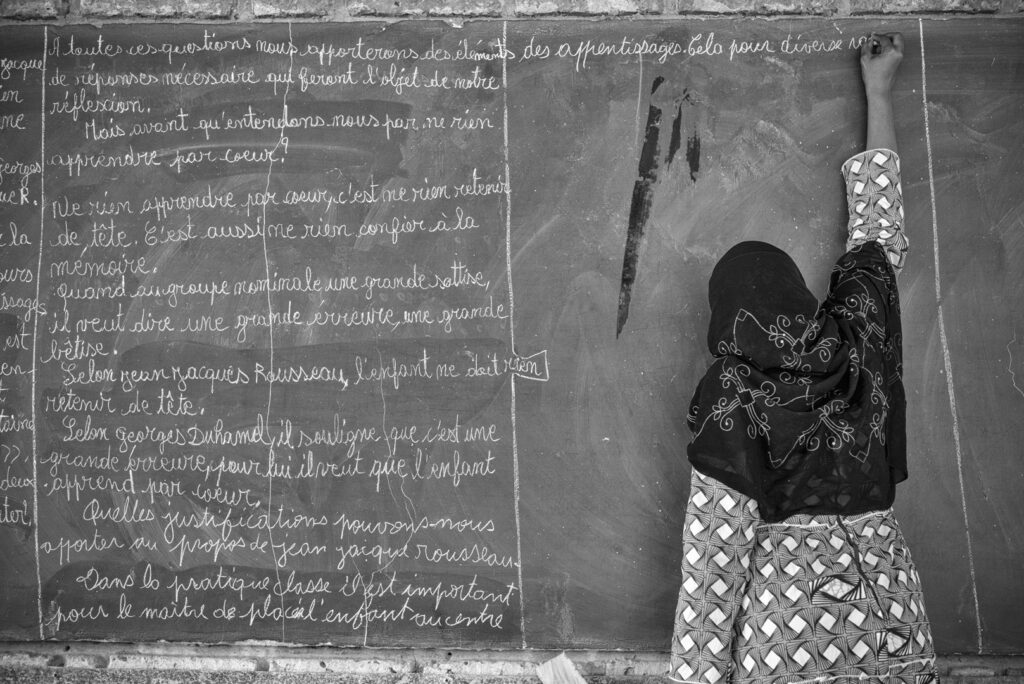 Jacques
en
ne
Georges
ue R.
la
ours
isages
est
en
??
deux
A toutes ces questions nous apporterons des éléments
de réponses nécessaire qui feront l'objet de notre
réflexion.
Mais avant qu'entendons-nous par, ne rien
apprendre par coeur?
Ne rien apprendre par coeur, c'est ne rien retenir
de tête. C'est aussi ne rien confier à la
mémoire.
Quand au groupe nominale une grande sottise,
il veut dire une grande érreure, une grande
bêtise.
Selon Jean Jacques Rousseau, l'enfant ne doit rien
retenir de tête.
Selon Georges Duhamel, il souligne que c'est une
grande érreure, pour lui il veut que l'enfant
apprend par coeur.
Quelles justifications pouvons-nous
apporter au propos de jean jacque rousseau.
Dans la pratique classe il est important
pour le maître de placé l'enfant au centre
des apprentissages. Cela pour diverse